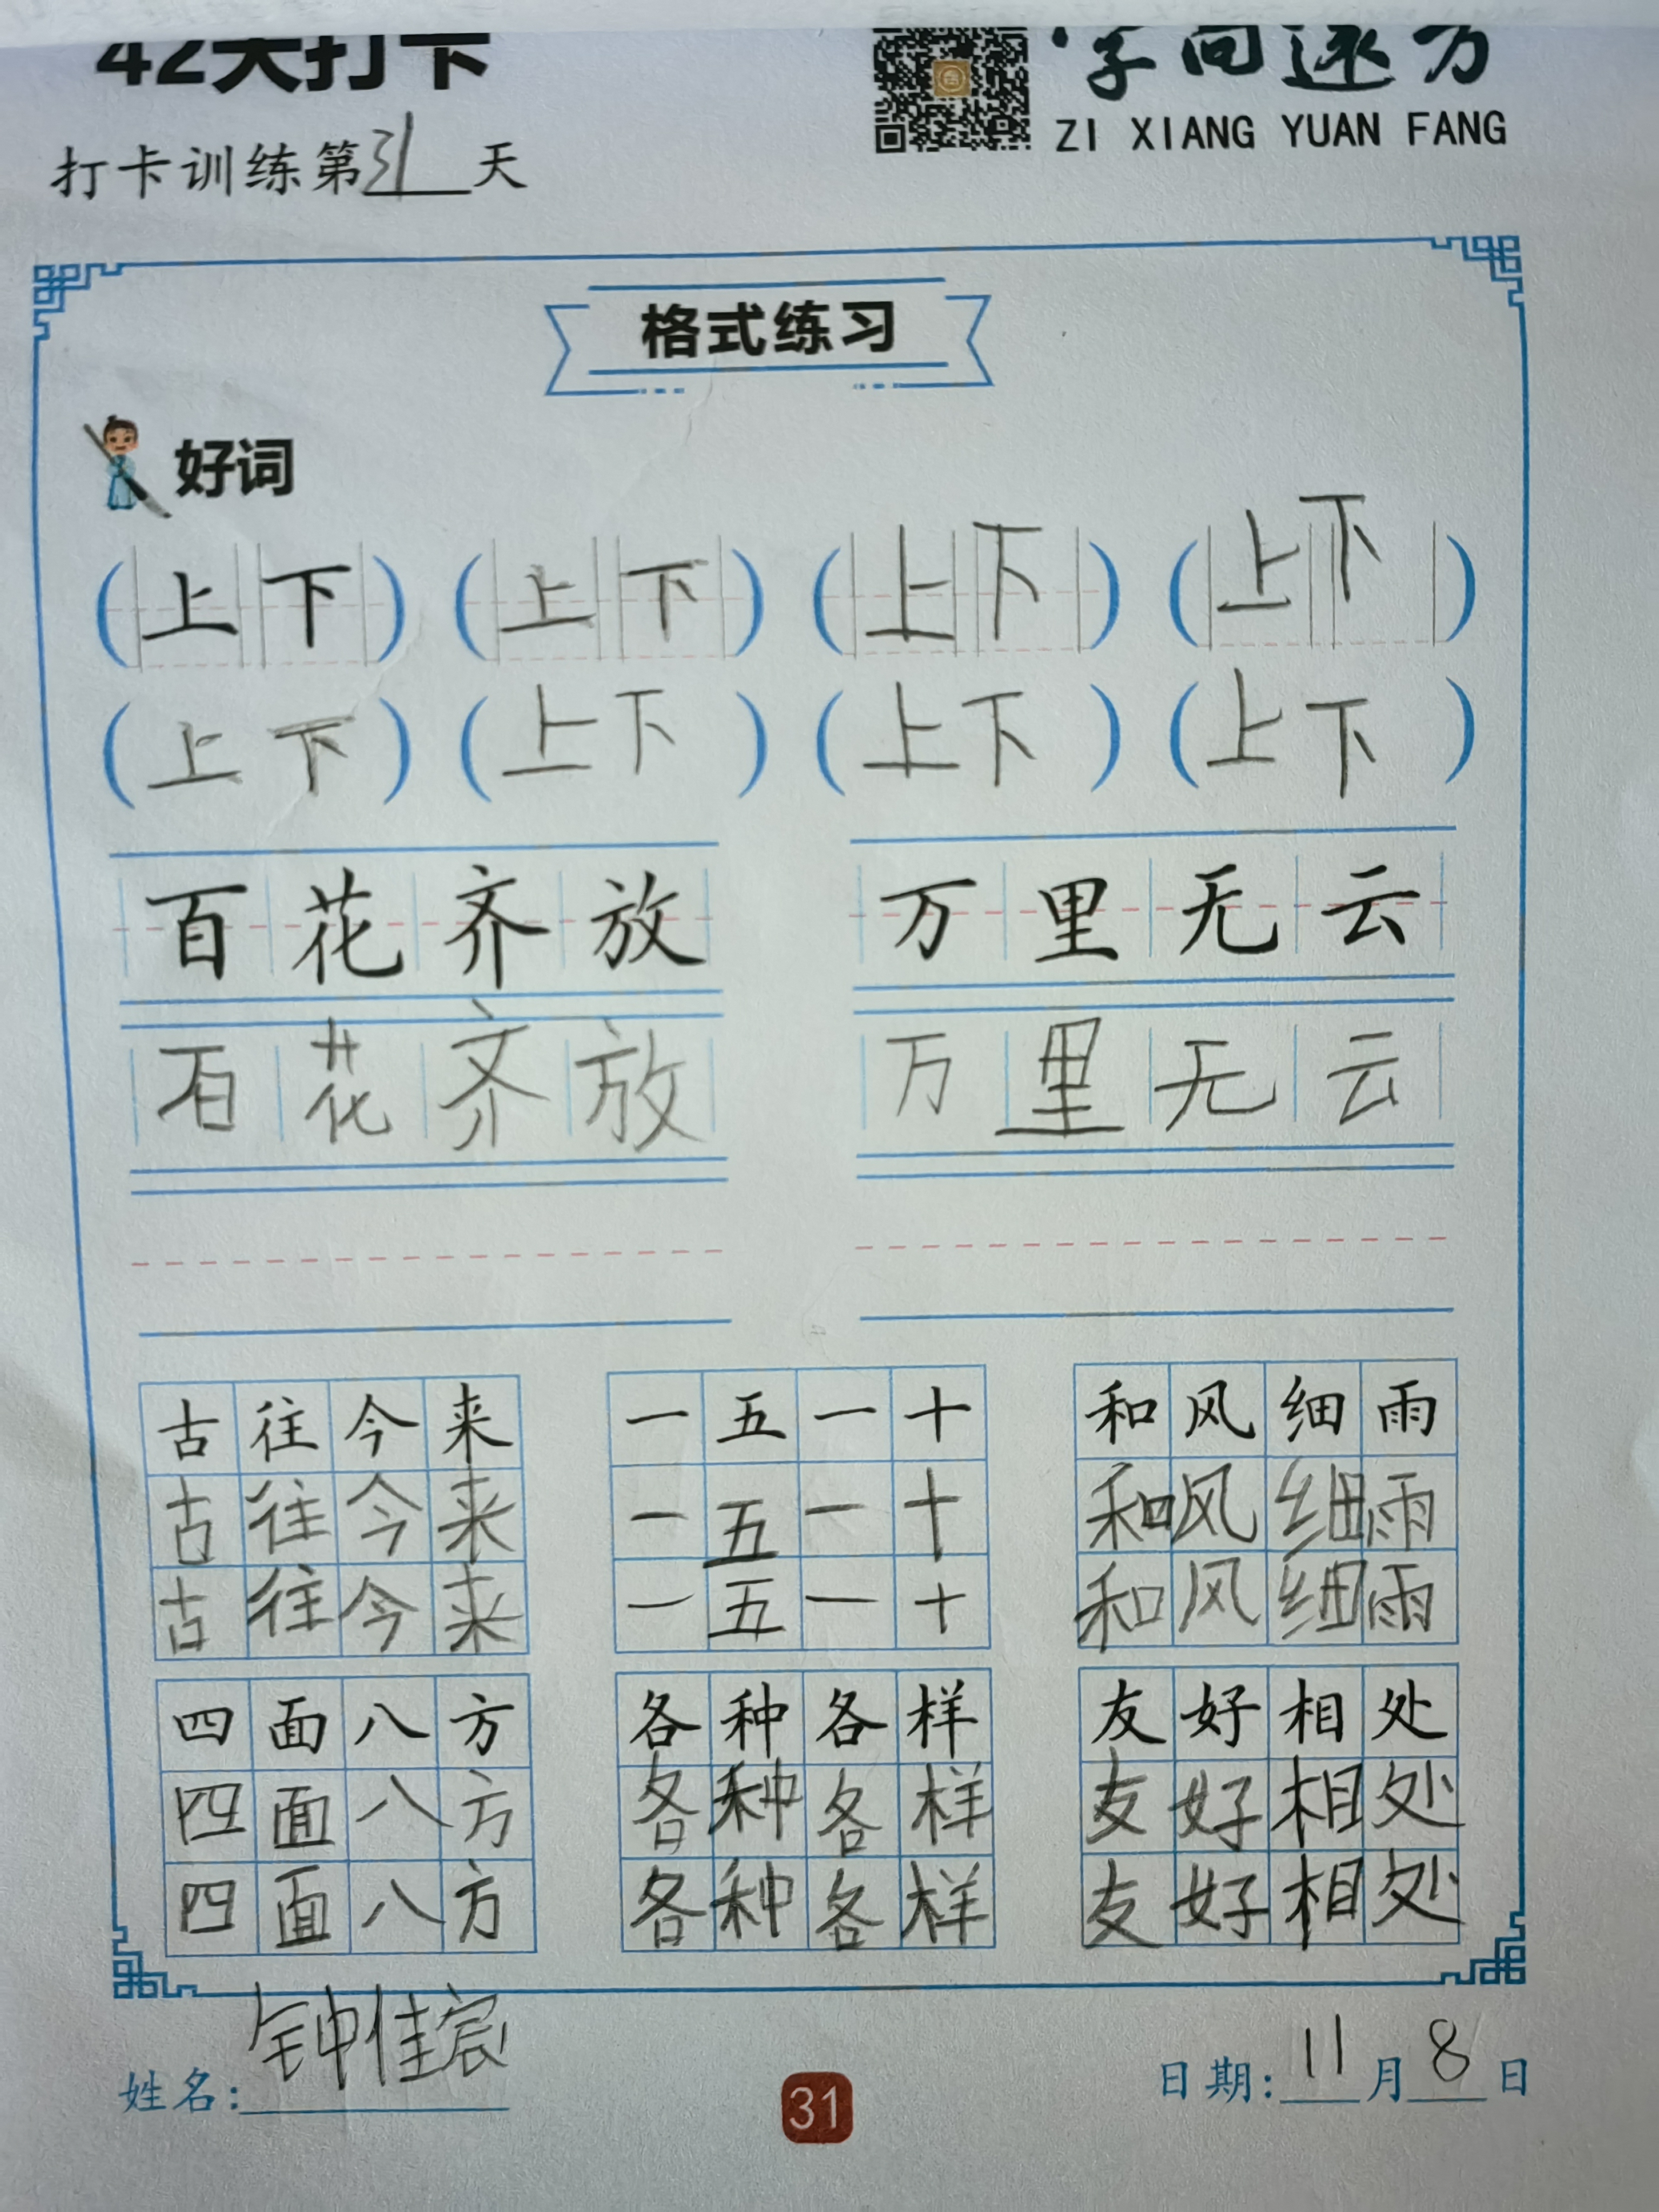 42天打卡
字向远方
ZI XIANG YUAN FANG
打卡训练第31天
格式练习
好词
(上下) (上下) (上下) (上下)
(上下) (上下) (上下) (上下)
百花齐放 万里无云
百花齐放 万里无云
古往今来 一五一十 和风细雨
古往今来 一五一十 和风细雨
古往今来 一五一十 和风细雨
四面八方 各种各样 友好相处
四面八方 各种各样 友好相处
四面八方 各种各样 友好相处
姓名:钟佳宸
31
日期:11月8日